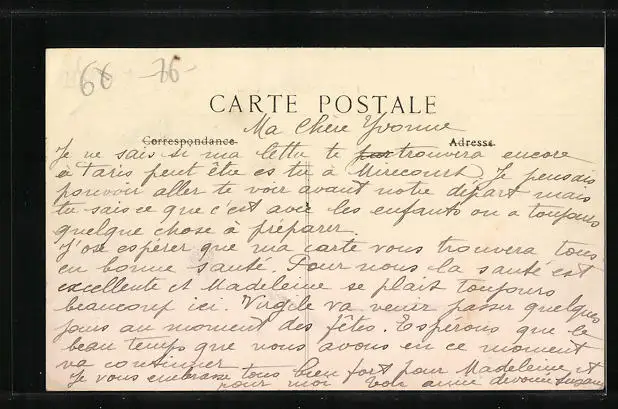 68 -76-
CARTE POSTALE
Correspondance Adresse
Ma Chère Yvonne
Je ne sais si ma lettre te trouvera encore
à Paris peut être es tu à Mirecourt. Je pensais
pouvoir aller te voir avant notre départ mais
tu sais ce que c'est avec les enfants on a toujours
quelque chose à préparer.
J'ose espérer que ma carte vous trouvera tous
en bonne santé. Pour nous la santé est
excellente et Madeleine se plait toujours
beaucoup ici. Virgile va venir passer quelques
jours au moment des fêtes. Espérons que le
beau temps que nous avons en ce moment
va continuer
Je vous embrasse tous bien fort pour Madeleine et
pour moi Ton amie dévouée Suzanne